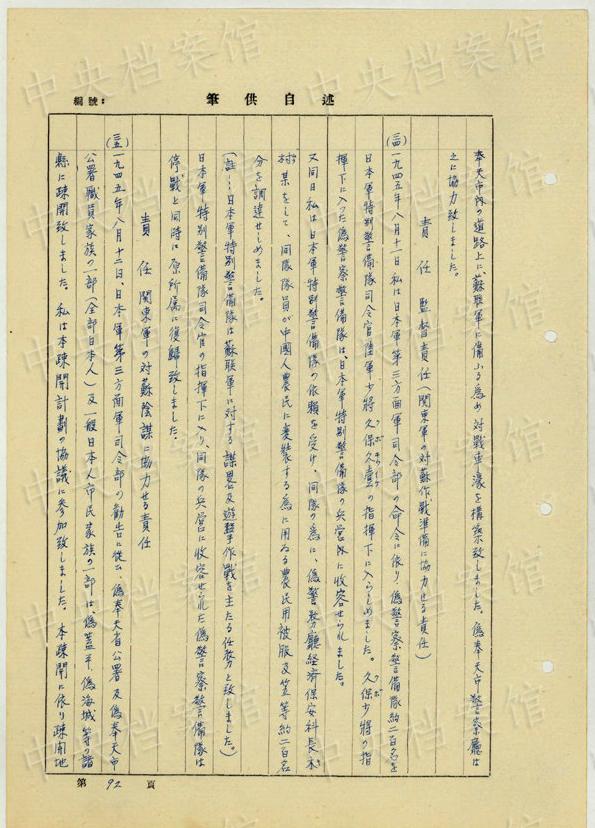 編號:
述自供筆
奉天市内の道路上に、蘇聯軍に備ふる為め対戦車濠を構築致しました。偽奉天市警察廳は
之に協力致しました。
責任 監督責任(関東軍の対蘇作戦準備に協力せる責任)
(三四)一九四五年八月十一日私は日本軍第三方面軍司令部の命令に依り、偽警察警備隊約二百名を
日本軍特別警備隊司令官陸軍少将久保久壹の指揮下に入らしめました。久保少将の指
揮下に入った偽警察警備隊は、日本軍特別警備隊の兵営内に收容せられました。
又同日私は日本軍特別警備隊の依頼を受け、同隊の為に、偽警務廳経済保安科長木
村某をして、同隊隊員が中國人農民に変装する為に用ゐる農民用被服及笠等約二百名
分を調達せしめました。
(註:日本軍特別警備隊は蘇聯軍に対する謀畧及遊撃作戦を主たる任務と致しました。)
日本軍特別警備隊司令官の指揮下に入り、同隊の兵営に收容せられた偽警察警備隊は
停戦と同時に原所属に復帰致しました。
責任 関東軍の対蘇陰謀に協力せる責任
(三五)一九四五年八月十二日、日本軍第三方面軍司令部の勧告に従ひ、偽奉天省公署及偽奉天市
公署職員家族の一部(全部日本人)及一般日本人市民家族の一部は、偽蓋平、偽海城等の諸
縣に疎開致しました。私は本疎開計劃の協議に参加致しました。本疎開に依り疎開地
第 92 頁
中央档案馆